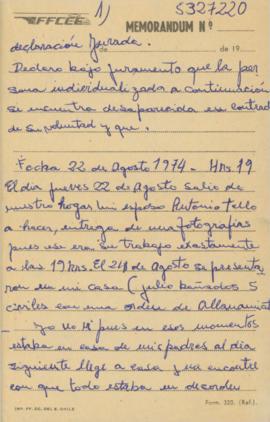 FFCCEE
1)
5327220
MEMORANDUM Nº
declaración Jurada.
de de 19
Declaro bajo juramento que la per
sona individualizada a continuación
se encuentra desaparecida en contra
de su voluntad y que.
Fecha 22 de Agosto 1974 - Hrs. 19
El dia jueves 22 de Agosto Salio de
nuestro hogar mi esposo Antonio Tello
a hacer, entrega de una fotografias
pues ese era su trabajo exactamente
a las 19 Hrs. El 24 de Agosto se presenta
ron en mi casa (julio bañados 5
civiles con una orden de Allanamiento
Yo no vi pues en esos momentos
estaba en casa de mis padres al dia
siguiente llege a casa y me encontré
con que todo estaba en desorden
IMP. FF. CC. DEL E. CHILE
Form. 320. (Ref.)